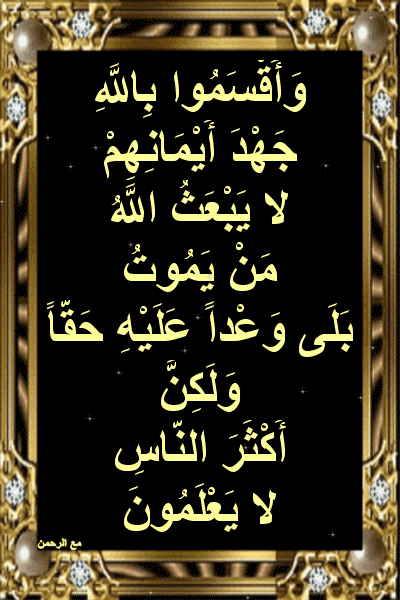 وَأَقْسَمُوا بِاللَّهِ
جَهْدَ أَيْمَانِهِمْ
لا يَبْعَثُ اللَّهُ
مَنْ يَمُوتُ
بَلَى وَعْداً عَلَيْهِ حَقّاً
وَلَكِنَّ
أَكْثَرَ النّاسِ
لا يَعْلَمُونَ
مع الرحمن